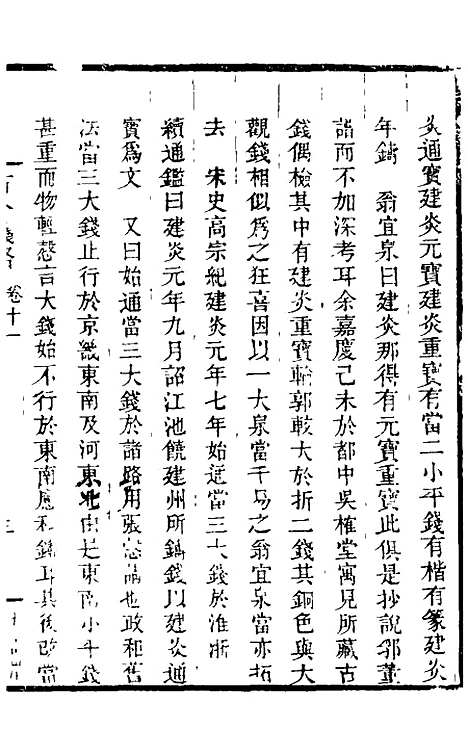 炎通寶建炎元寶建炎重寶有當二小平錢有楷有篆建炎
年鑄　翁宜泉曰建炎那得有元寶重寶此俱是抄說鄒董
諧而不加深考耳余嘉慶己未於都中吳榷堂寓見所藏古
錢偶檢其中有建炎重寶輪郭較大於折二錢其銅色與大
觀錢相似為之狂喜因以一大泉當千易之翁宜泉當亦拓
去　宋史高宗紀建炎元年七年始通當三大錢於淮浙
續通鑑曰建炎元年九月詔江池饒建州所鑄錢以建炎通
寶為文　又曰始通當三大錢於諸路用張愨議也政和舊
法當三大錢止行於京畿東南及河東北由是東南小平錢
甚重而物輕愨言大錢始不行於東南慮私鑄耳其後改當
卷十一